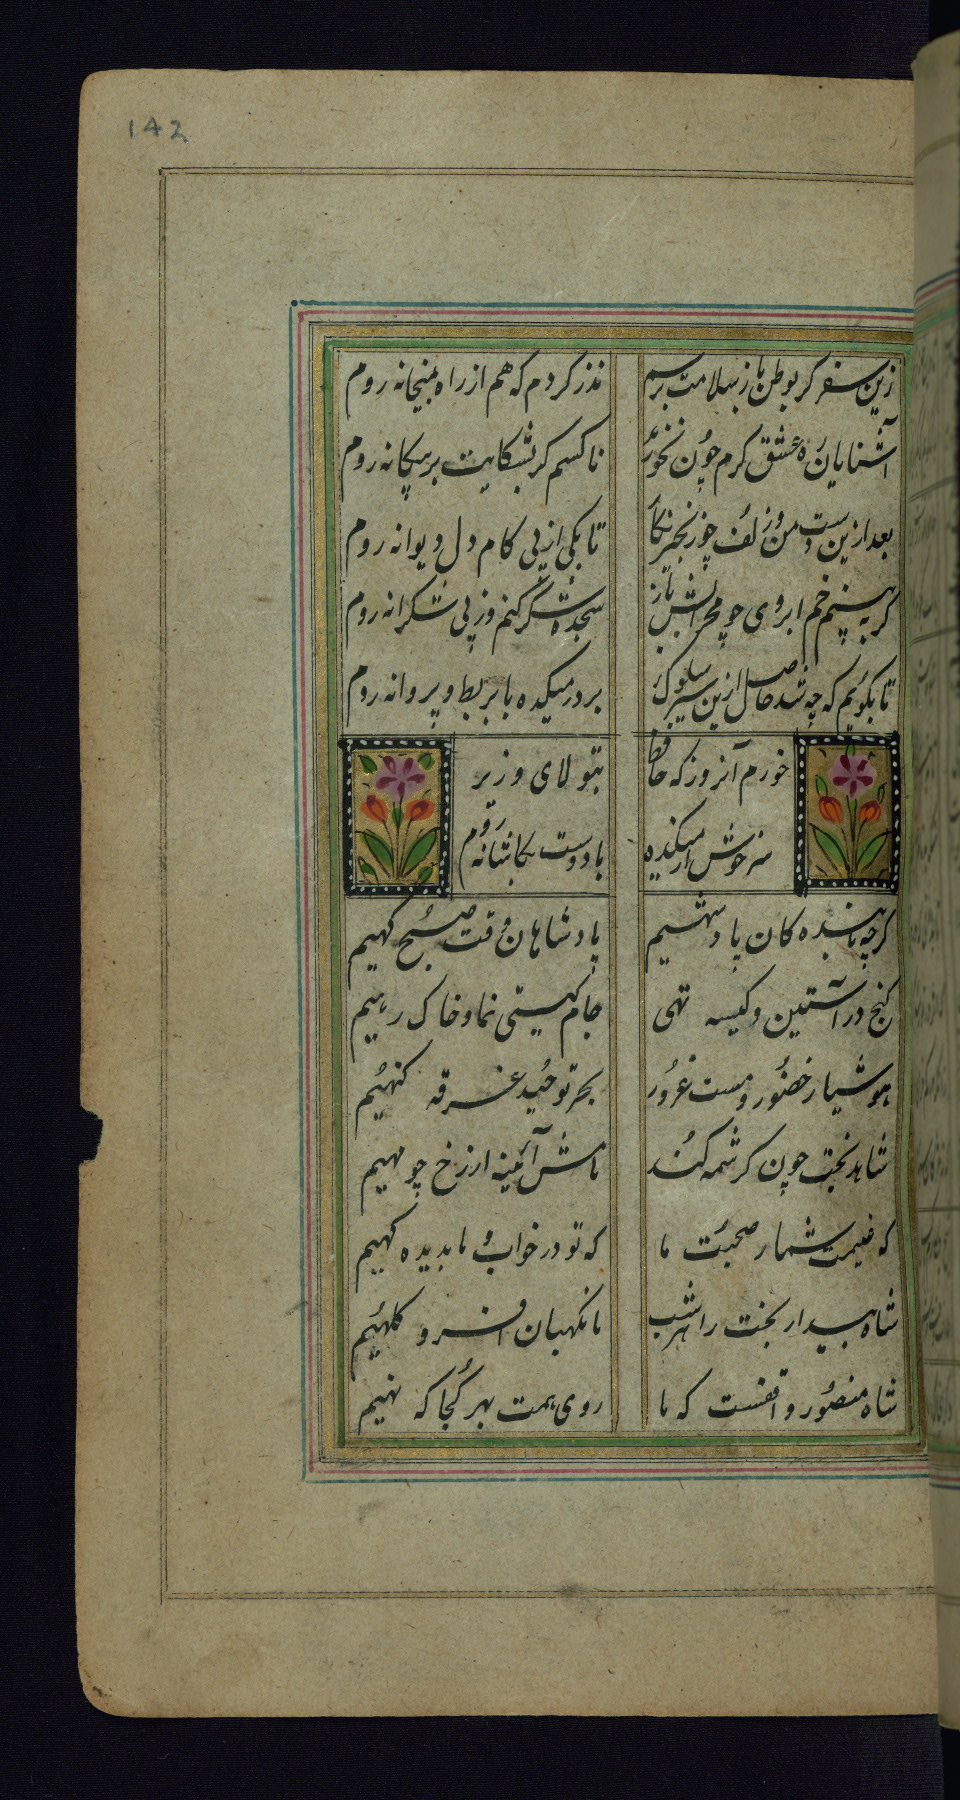 142
زین سفر کر بوطن باز بسلامت برسم نذر کردم که هم از راه بمیخانه روم
آشنایان ره عشق کرم خون بخورند ناکسم کر بشکایت بر بیکانه روم
بعد ازین دست من و زلف چو زنجیر نکار تا بکی از پی کام دل دیوانه روم
کر به بینم خم ابروی چو محرابش باز سجده شکر کنم وز پی شکرانه روم
تا بکویم که چه شد حاصل ازین سیر سلوک بر در میکده با بربط و پیمانه روم
خورم آنروز که حافظ بتولای وزیر
سرخوش از میکده با دوست بکاشانه روم
کرچه ما بنده کان پادشهیم پادشاهان وقت صبح کهیم
کنج در آستین و کیسه تهی جام کیتی نما و خاک رهیم
هوشیار حضور و مست غرور بحر توحید غرقه کنهیم
شاهد بخت چون کرشمه کند ماش آئینه ارزخ چو مهیم
که غنیمت شمار صحبت ما که تو در خواب و ما بدیده کهیم
شاه بیدار بخت را هر شب ما نکهبان افسر و کلهیم
شاه منصور واقفست که ما روی همت بهر کجا که نهیم